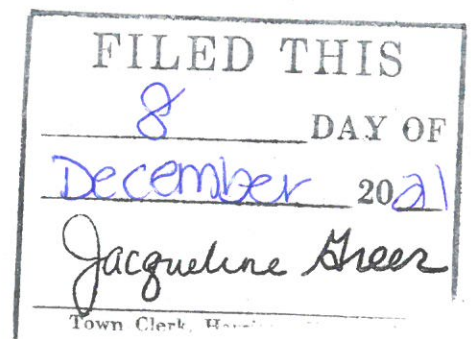 FILED THIS
8 DAY OF
December 2021
Jacqueline Greer
Town Clerk,